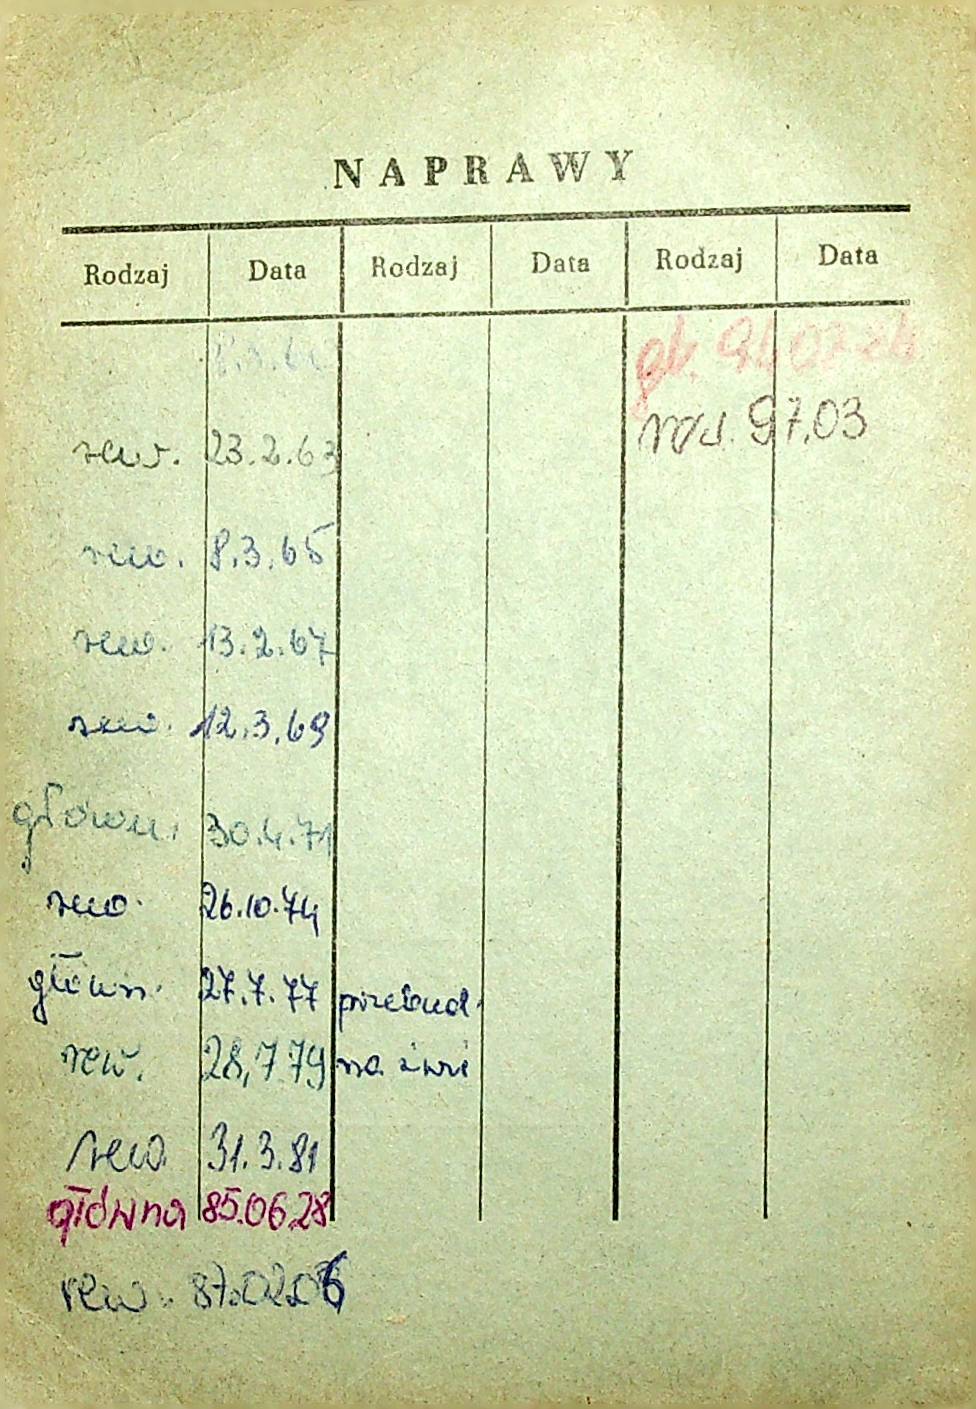 NAPRAWY
Rodzaj Data Rodzaj Data Rodzaj Data
gł.
rew. 97.03
rew. 23.2.63
rew. 8.3.65
rew. 13.2.67
rew. 12.3.69
główn. 30.4.71
rew. 26.10.74
główn. 27.7.77 przebud.
rew. 28,7 79 na
rew. 31.3.81
główna 85.06.28
rew. 87.02.06